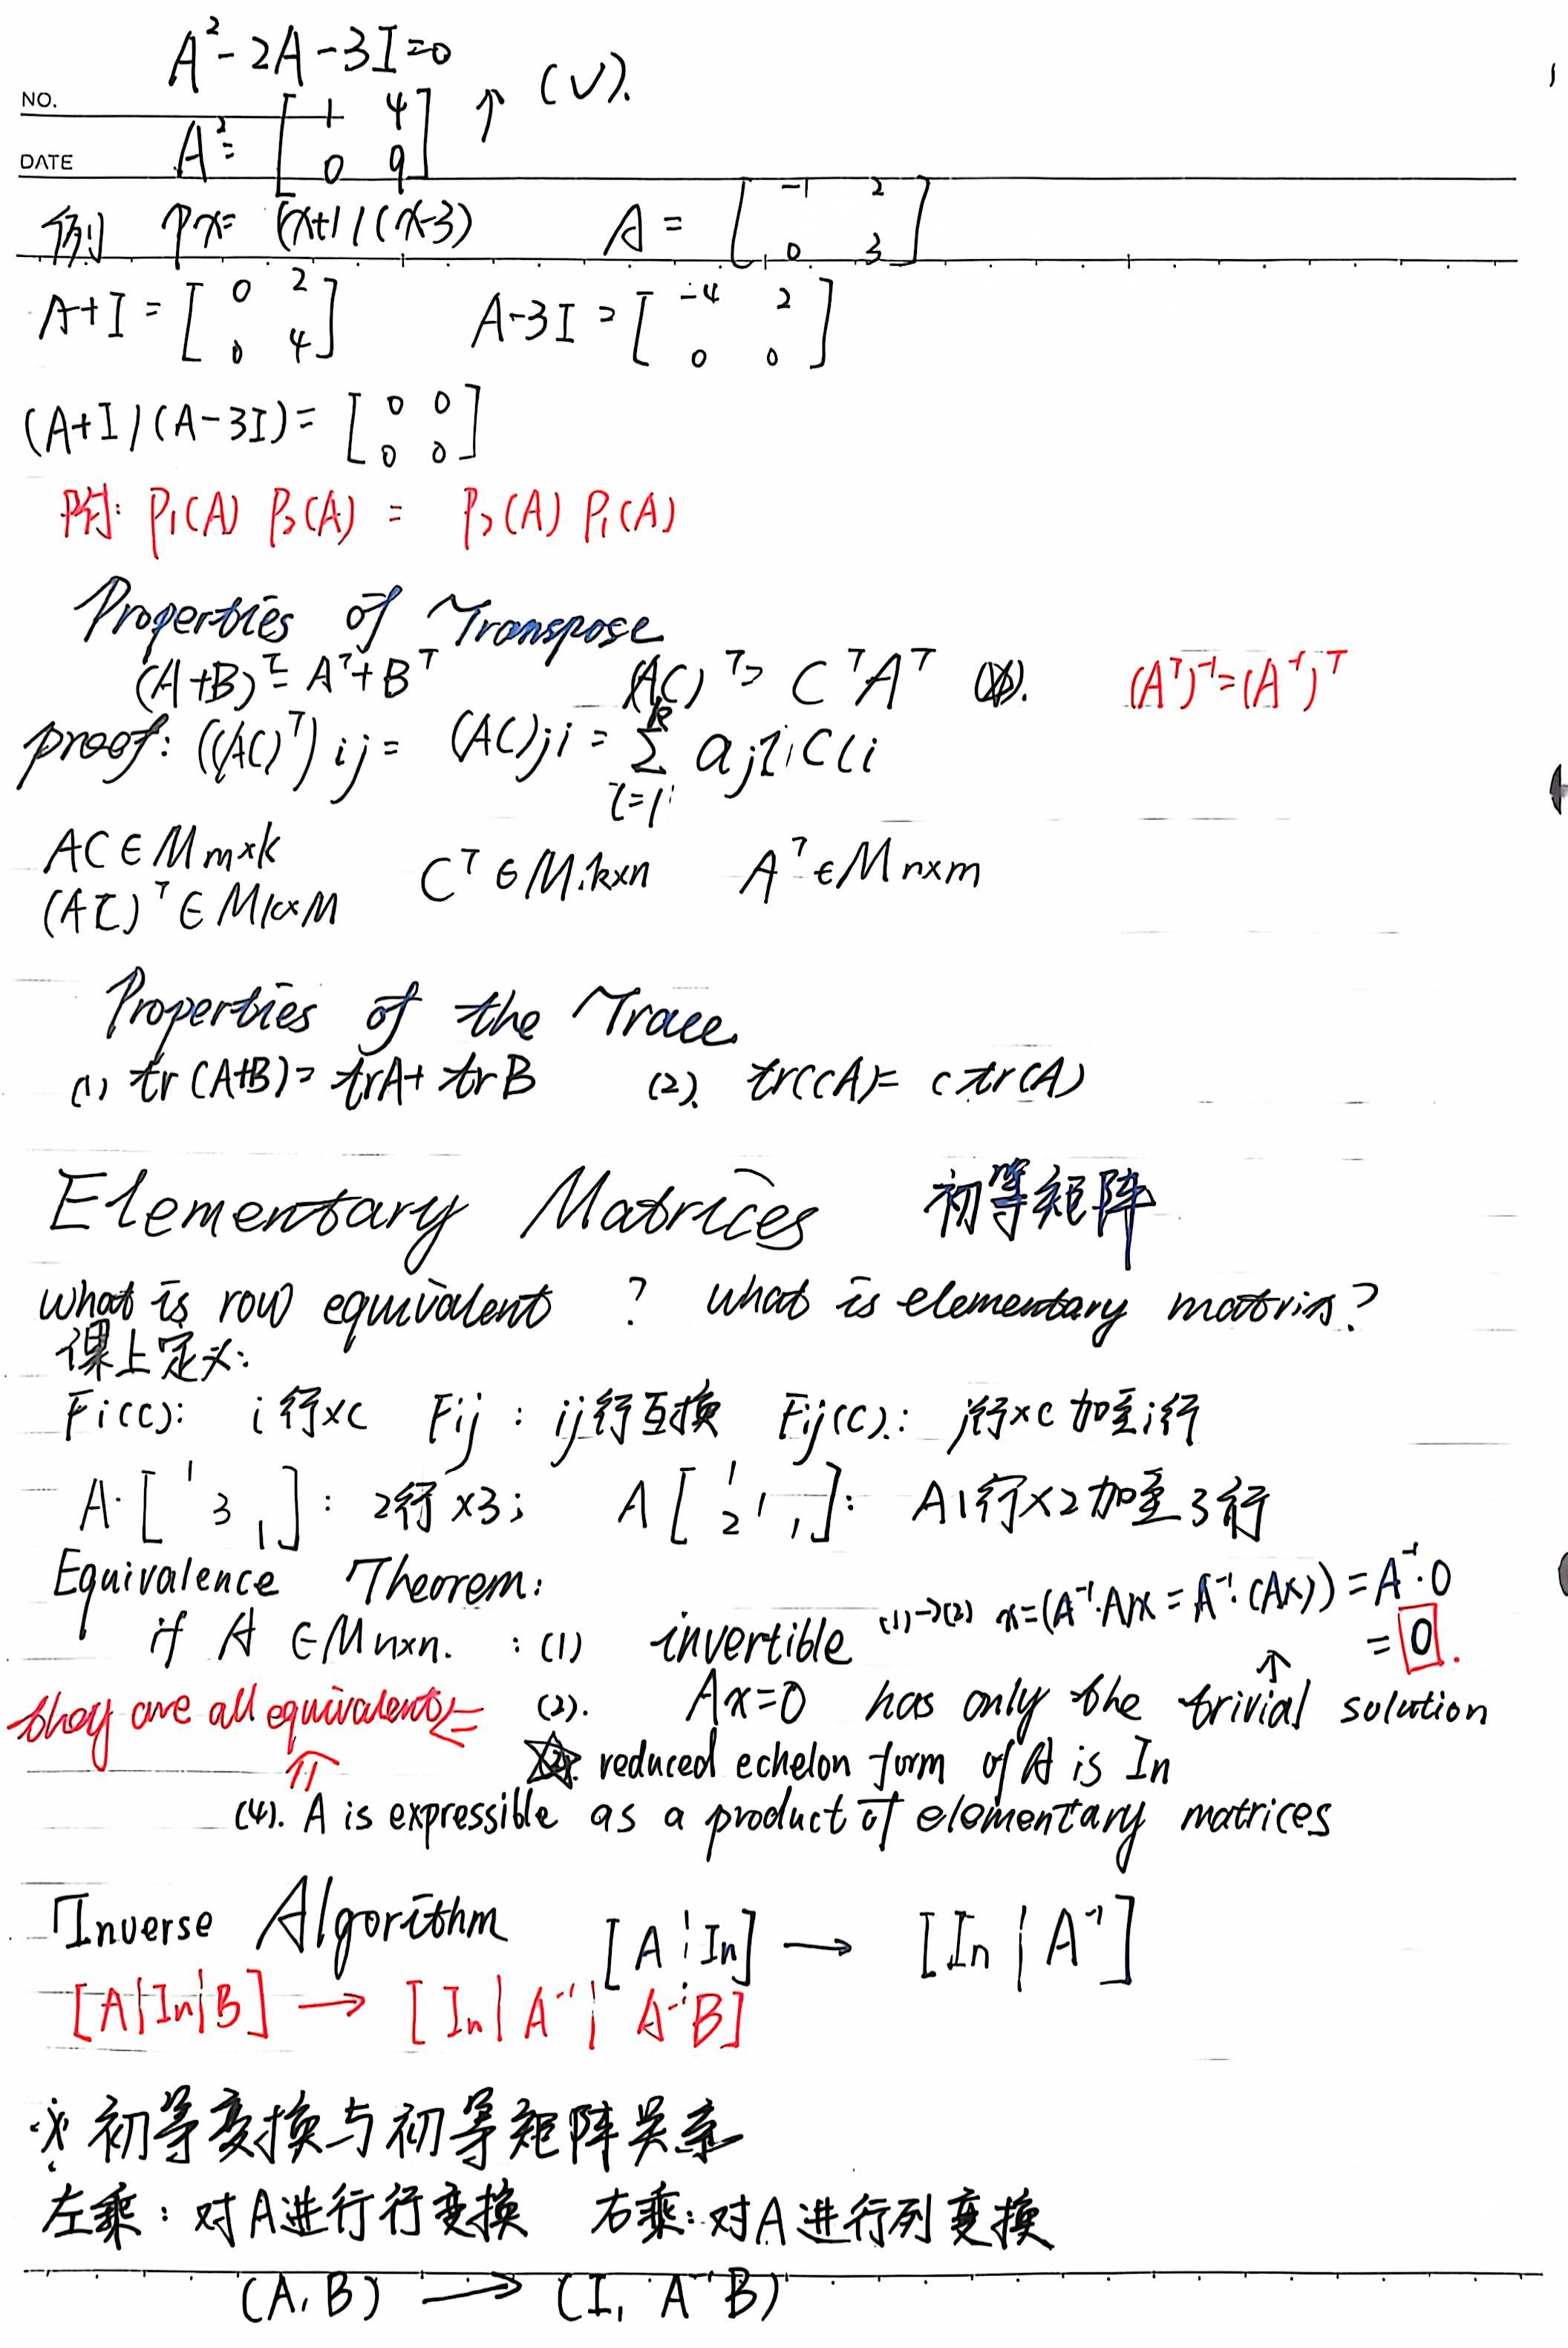 A²-2A-3I=0
NO.
A²= [1 4; 0 9] ↑ (√).
DATE
例 Px= (x+1)(x-3) A = [-1 2; 0 3]
A+I = [0 2; 0 4] A-3I = [-4 2; 0 0]
(A+I)(A-3I) = [0 0; 0 0]
附: P₁(A) P₂(A) = P₂(A) P₁(A)
Properties of Transpose
(A+B)ᵀ= Aᵀ+Bᵀ (AC)ᵀ= CᵀAᵀ (Aᵀ)⁻¹=(A⁻¹)ᵀ
proof: ((AC)ᵀ) ij = (AC)ji = Σ_{l=1}^{k} ajl Cli
AC∈Mm×k Cᵀ∈Mk×n Aᵀ∈Mn×m
(AC)ᵀ∈Mk×M
Properties of the Trace
(1) tr(A+B)= trA+ trB (2). tr(cA)= c tr(A)
Elementary Matrices 初等矩阵
what is row equivalent ? what is elementary matrix?
课上定义:
Fi(c): i行×c Fij : ij行互换 Fij(c): j行×c 加至i行
A·[1 3 1]: 2行×3; A[1 2 1 1]: A1行×2加至3行
Equivalence Theorem:
if A ∈Mn×n. : (1) invertible (1)→(2) x=(A⁻¹·A)x = A⁻¹·(Ax) = A⁻¹·0
= 0.
they are all equivalent ⇐ (2). Ax=0 has only the trivial solution
⇑ ☆ reduced echelon form of A is In
(4). A is expressible as a product of elementary matrices
Inverse Algorithm [A|In] → [In | A⁻¹]
[A|In|B] → [In| A⁻¹| A⁻¹B]
※ 初等变换与初等矩阵关系
左乘: 对A进行行变换 右乘: 对A进行列变换
(A, B) → (I, A⁻¹B)